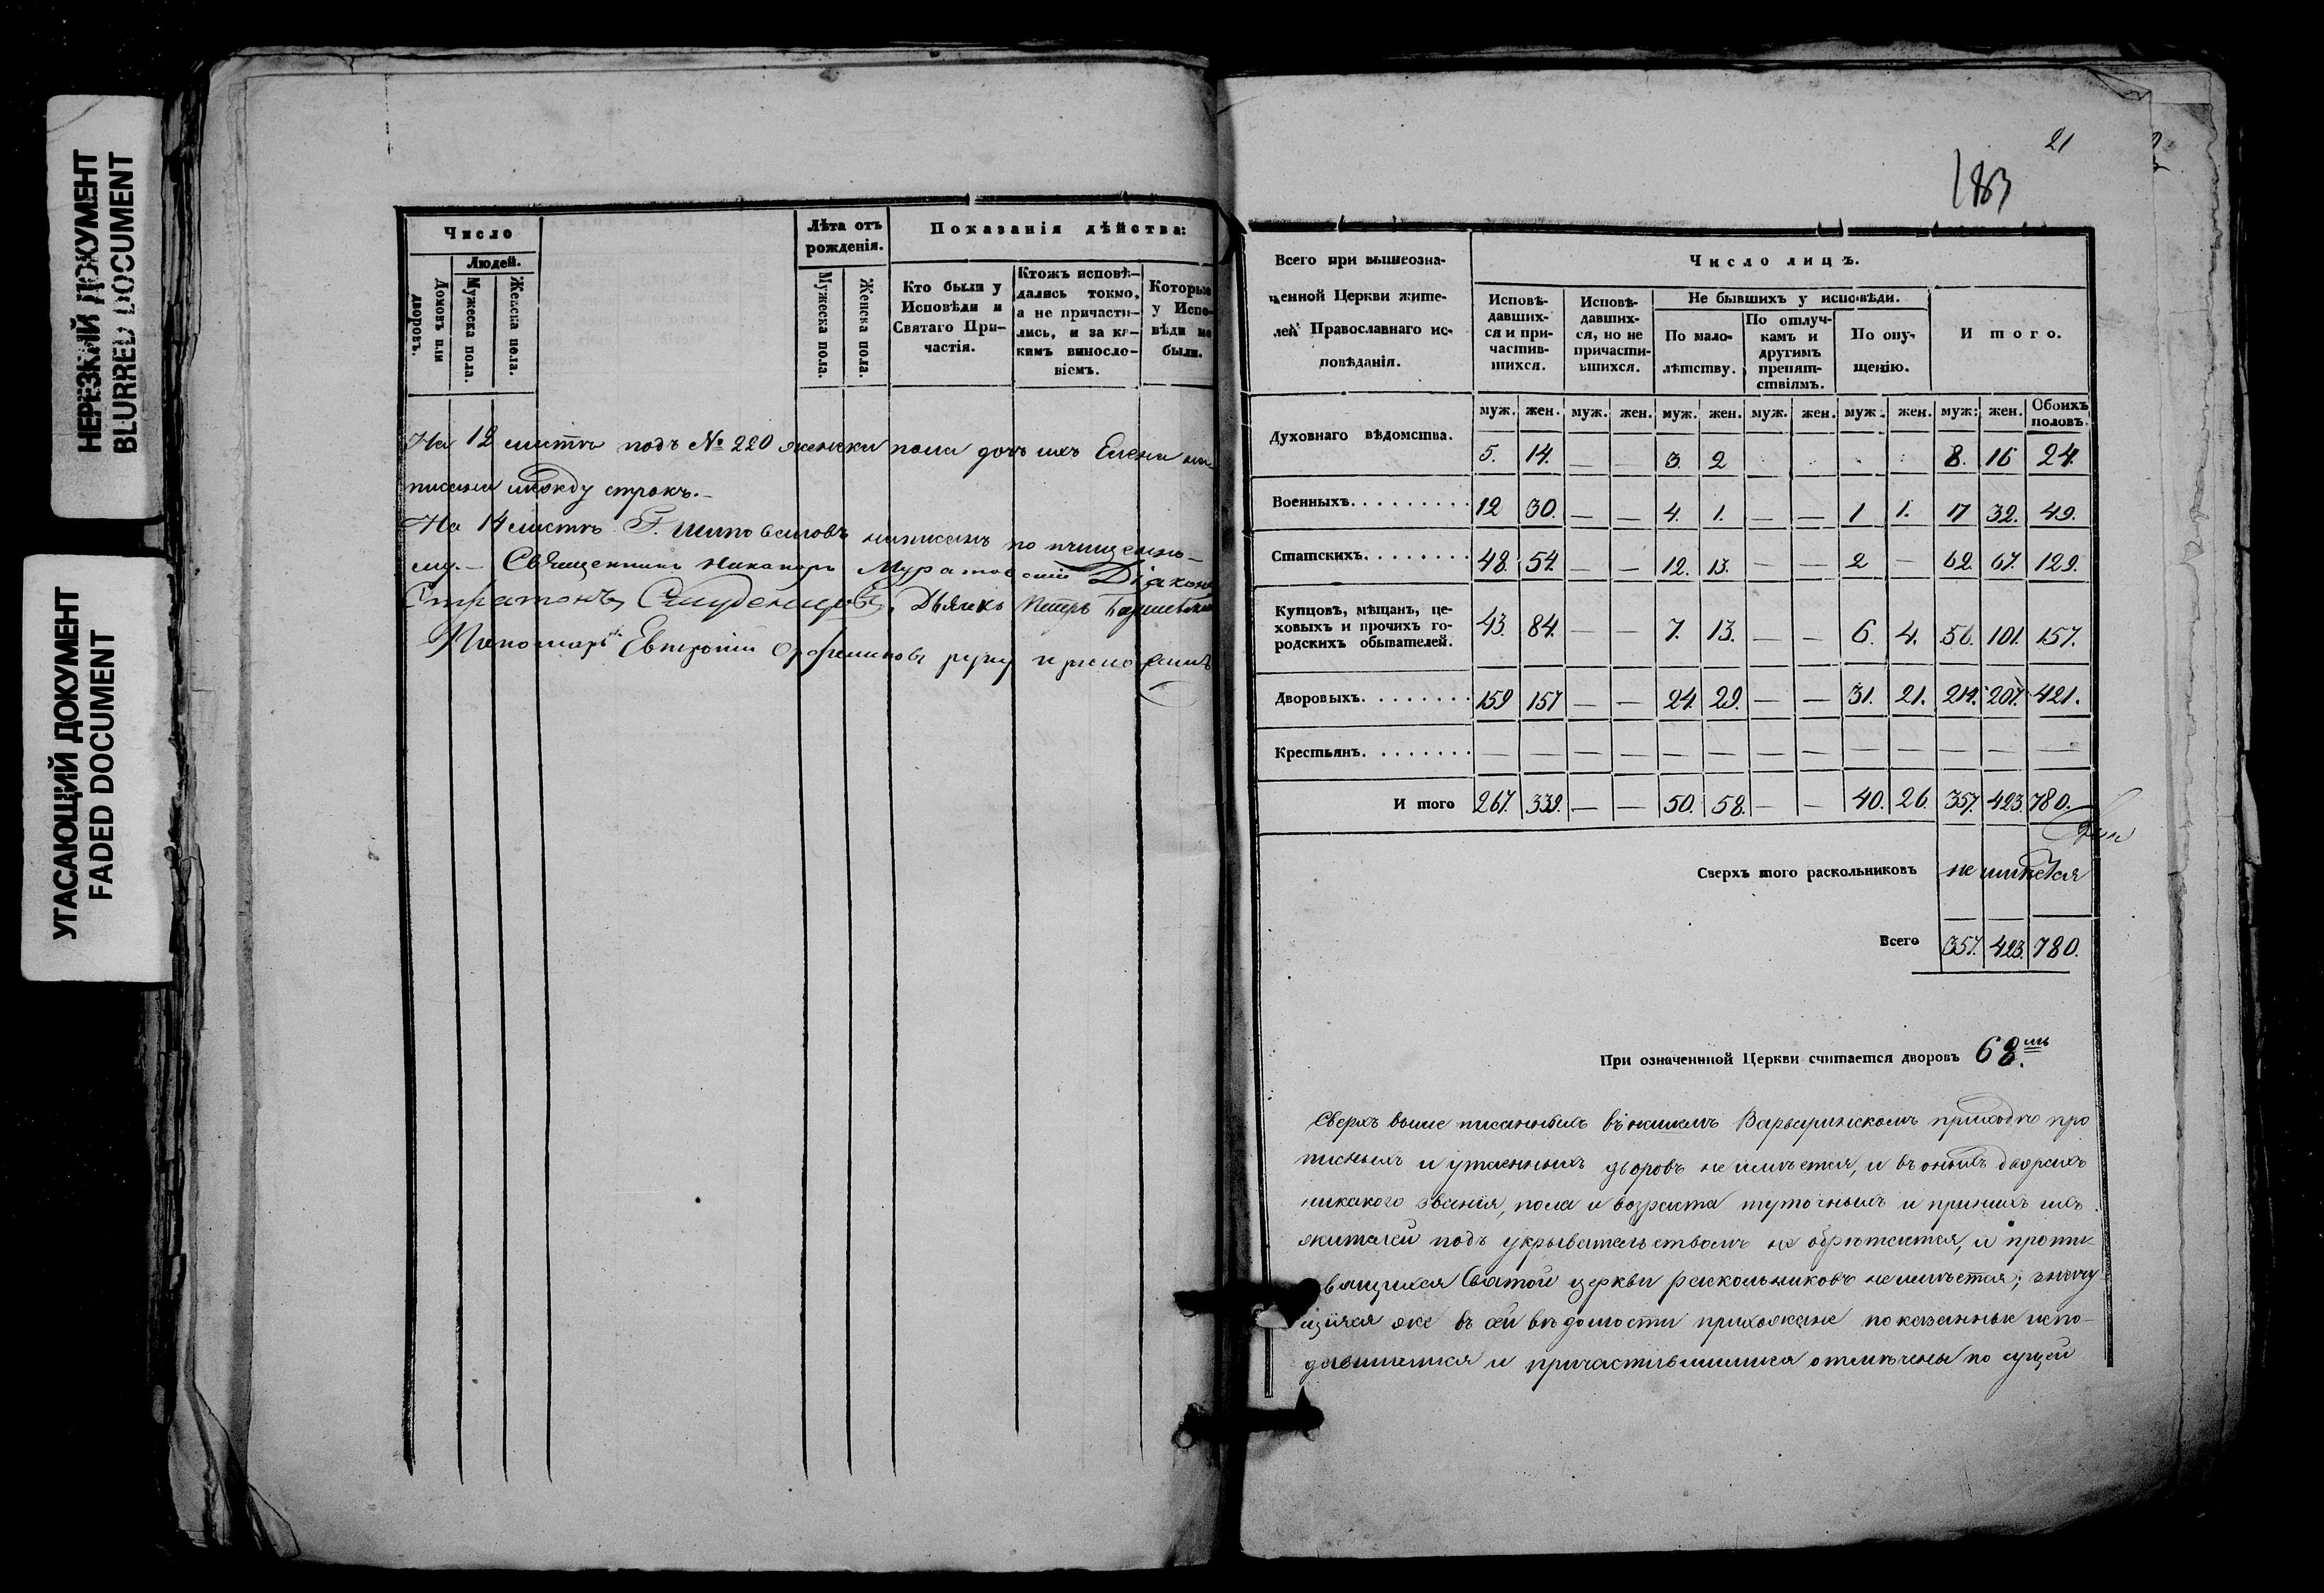 НЕРЕЗКИЙ ДОКУМЕНТ
BLURRED DOCUMENT
УГАСАЮЩИЙ ДОКУМЕНТ
FADED DOCUMENT
Число
Людей.
Домовъ или дворовъ.
Мужеска пола.
Женска пола.
Лѣта отъ рожденія.
Мужеска пола.
Женска пола.
Показанія дѣйства:
Кто были у
Исповѣди и
Святаго При-
частія.
Ктожъ исповѣ-
дались токмо,
а не причасти-
лись, и за ка-
кимъ винosло-
віемъ.
Которые
у Испо-
вѣди не
были.
На 12 листѣ подъ № 220 женска пола дочь ихъ Елена на-
писана между строкъ.-
На 14 листѣ написанъ по чищенно-
му.- Священникъ Никаноръ Муратовскій Діаконъ
Стратонъ Студенцовъ, Дьячекъ Петръ
Пономарь Евтропій руку приложилъ
21
183
Всего при вышеозна-
ченной Церкви жите-
лей Православнаго ис-
повѣданія.
Число лицъ.
Исповѣ-
давших-
ся и при-
частив-
шихся.
Исповѣ-
давших-
ся, но не
причасти-
вшихся.
Не бывшихъ у исповѣди.
По мало-
лѣтству.
По отлуч-
камъ и
другимъ
препят-
ствіямъ.
По опу-
щенію.
И того.
муж. жен. муж. жен. муж. жен. муж. жен. муж. жен. муж: жен. Обоихъ половъ.
Духовнаго вѣдомства. 5. 14. — — 3. 2 8. 16 24.
Военныхъ. 12 30. — — 4. 1. — — 1 1. 17 32. 49.
Статскихъ. 48. 54. — — 12. 13. — — 2 — 62. 67. 129.
Купцовъ, мѣщанъ, це-
ховыхъ и прочихъ го-
родскихъ обывателей. 43. 84. — — 7. 13. — — 6. 4. 56. 101. 157.
Дворовыхъ. 159 157 — — 24. 29. — — 31. 21. 214. 207. 421.
Крестьянъ. — — — — — — — — — — — — —
И того 267. 339. — — 50. 58. — — 40. 26. 357. 423. 780.
Сверхъ того раскольниковъ не имѣется
Всего 357. 423. 780.
При означеннной Церкви считается дворовъ 68.мь
Сверхъ выше писанныхъ въ нашемъ Варваринскомъ приходѣ про
писныхъ и утаенныхъ дворовъ не имѣется, и въ оныхъ дворахъ
никакого званія, пола и возраста туточныхъ и пришлыхъ
жителей подъ укрывательствомъ не обрѣтается, и проти-
вящихся Святой церкви раскольниковъ не имѣется;
же въ сей вѣдомости прихожане показанные испо-
давшимися и причастившимися отмѣчены по сущей